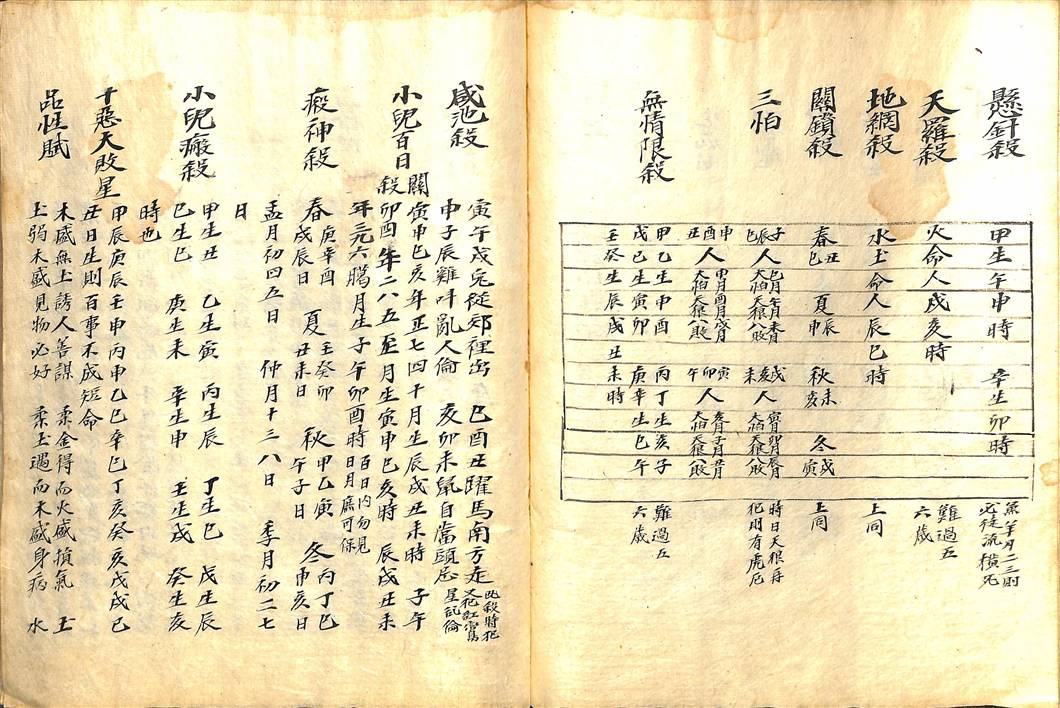 懸針殺 甲生午申時 辛生卯時
天羅殺 火命人戌亥時 難過五六歲
地網殺 水土命人辰巳時 上同
關鎖殺 春丑巳 夏辰申 秋未亥 冬戌寅 上同
三怕 子辰巳人 戌亥未人 時日天狼再犯用有虎厄
申酉丑人 寅卯午人
無情限殺 甲乙生申酉 丙丁生亥子 難過五六歲
戊己生寅卯 庚辛生巳午
壬癸生辰戌丑未時
咸池殺 寅午戌兔從郊裡出 巳酉丑躍馬南方走
申子辰雞叫亂人倫 亥卯未鼠自當頭忌
小兒百日關殺 寅申巳亥年正七四十月生辰戌丑未時 子午
卯酉年二八五至月生寅申巳亥時 辰戌丑未
年三九六臘月生子午卯酉時 百日內勿見日月廕可保
瘢神殺 春庚辛酉戌辰日 夏壬癸卯丑未日 秋甲乙寅午子日 冬丙丁巳申亥日
孟月初四五日 仲月十三八日 季月初二七
日
小兒瘢殺 甲生丑 乙生寅 丙生辰 丁生巳 戊生辰
己生巳 庚生未 辛生申 壬生戌 癸生亥
時也
十惡大敗星 甲辰庚辰壬申丙申乙巳辛巳丁亥癸亥戊戌己
丑日生則百事不成短命
品性賦 木盛無土謗人善謀 柔金得而火盛損氣 土
土弱木盛見物必好 柔土遇而木盛身病 水